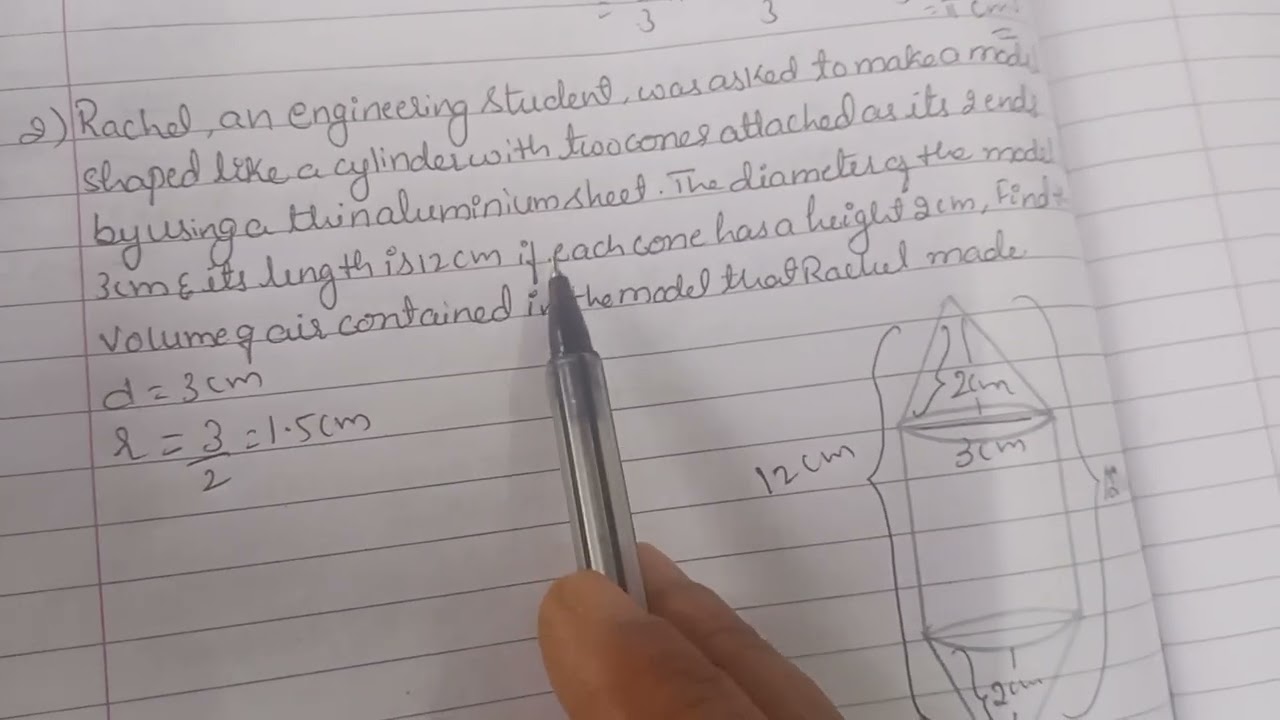 3 3 = π cm
2) Rachel, an engineering student, was asked to make a model
shaped like a cylinder with two cones attached as its 2 ends
by using a thin aluminium sheet. The diameter of the model
3cm & its length is 12 cm if each cone has a height 2cm, Find
volume of air contained in the model that Rachel made
d = 3 cm
r = 3/2 = 1.5 cm
2cm
3cm
12 cm
2cm